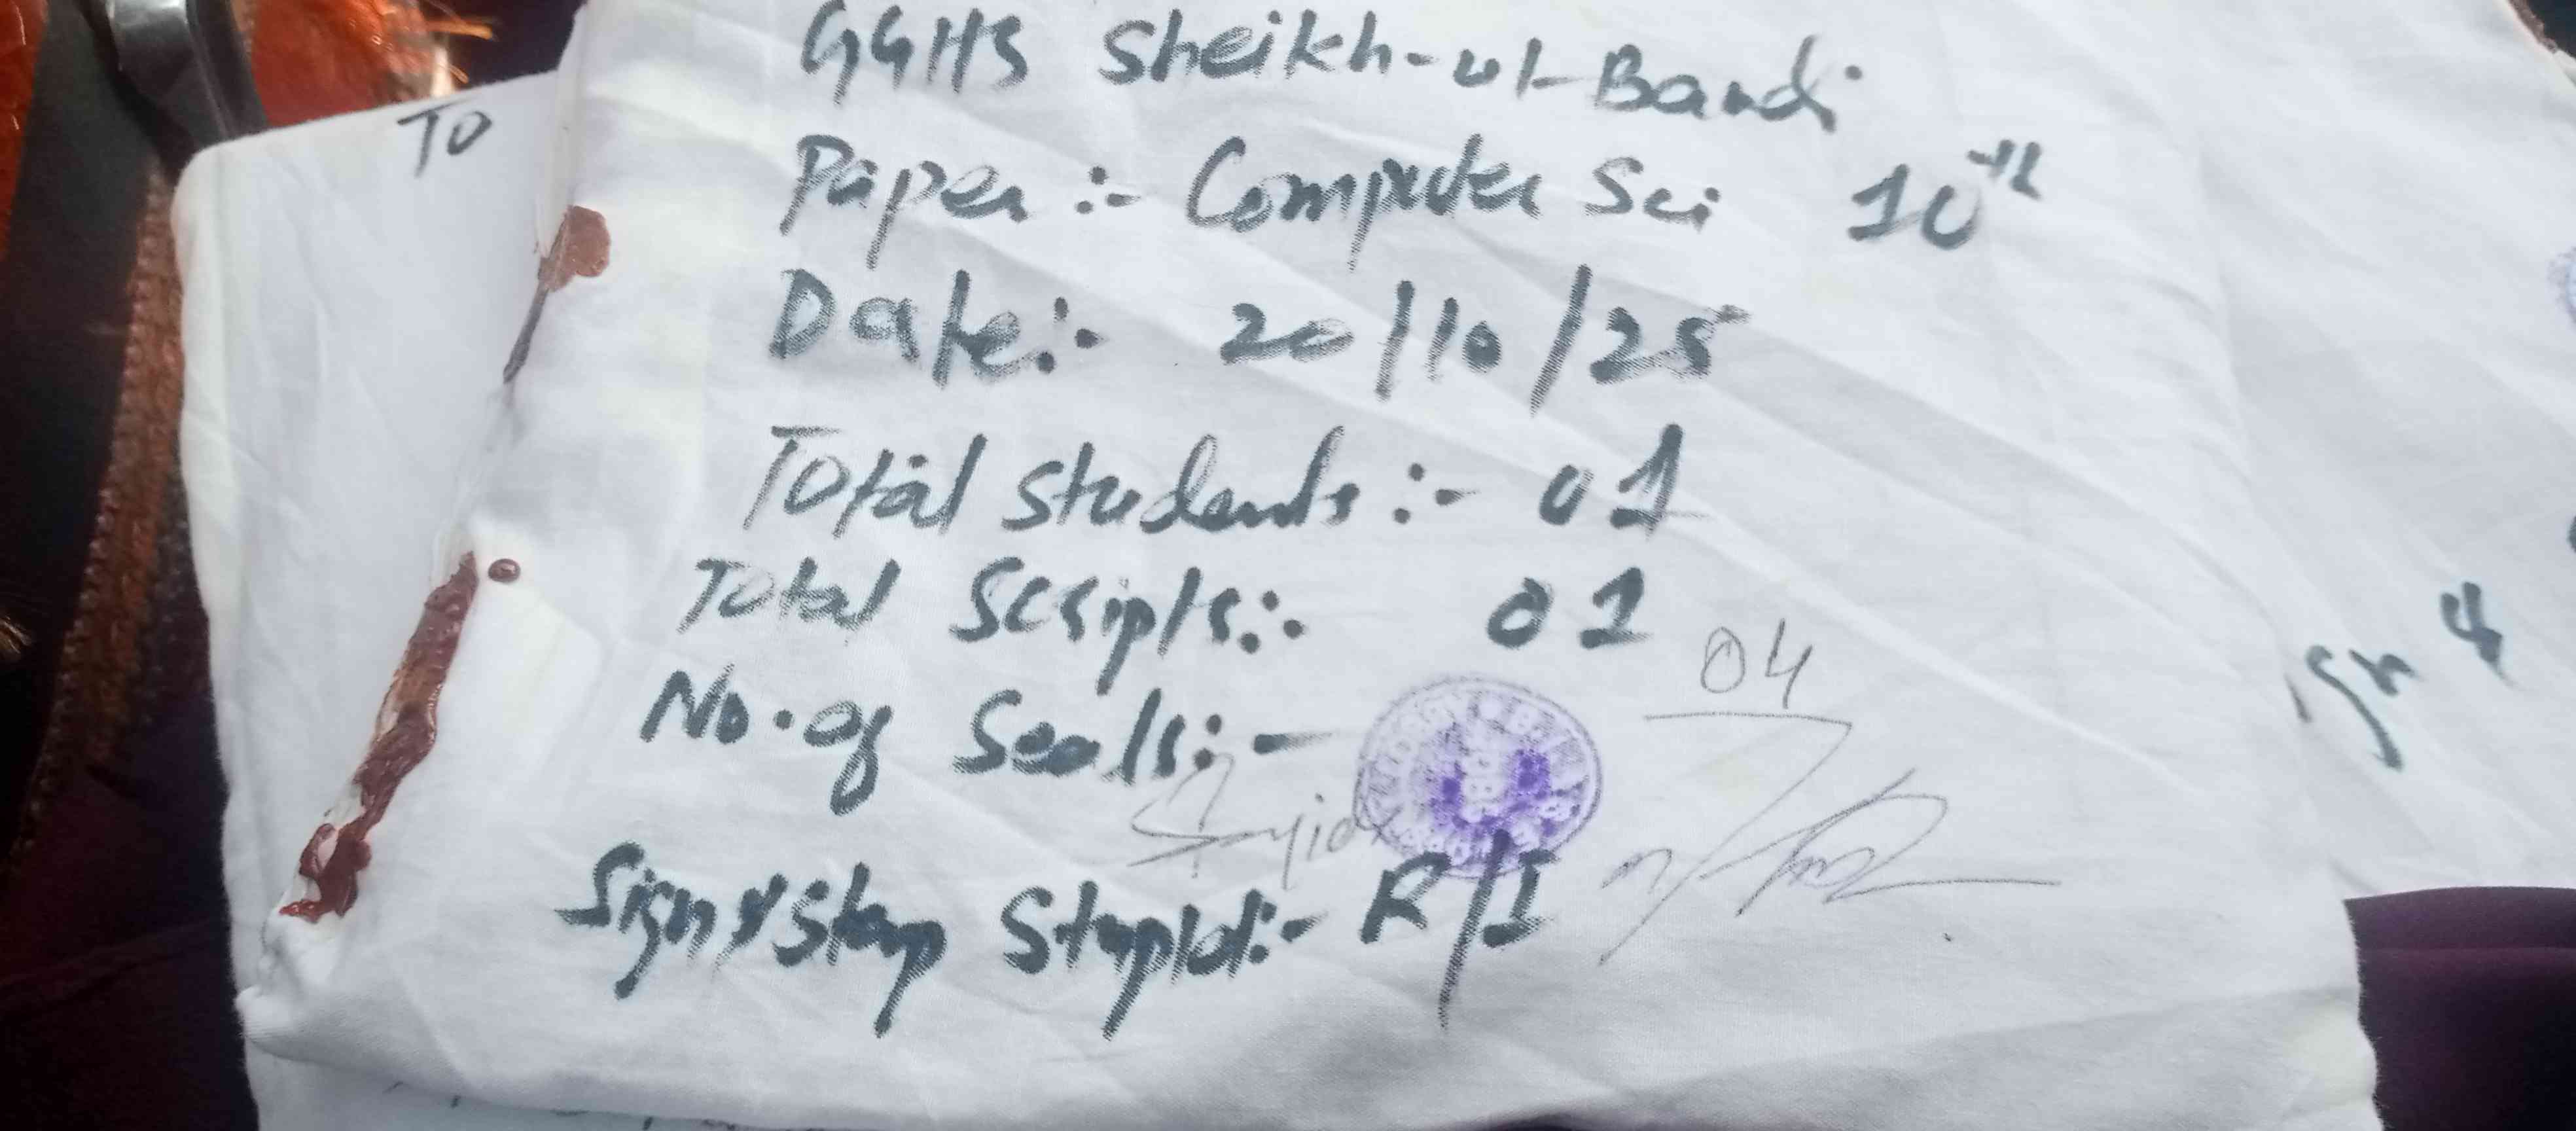 GGHS Sheikh-ul-Bandi
To
Paper :- Computer Sci 10th
Date:- 20/10/25
Total Students :- 01
Total Scripts:- 01
No. of Seals:- 04
Sign & Stamp Stapled:- R/I